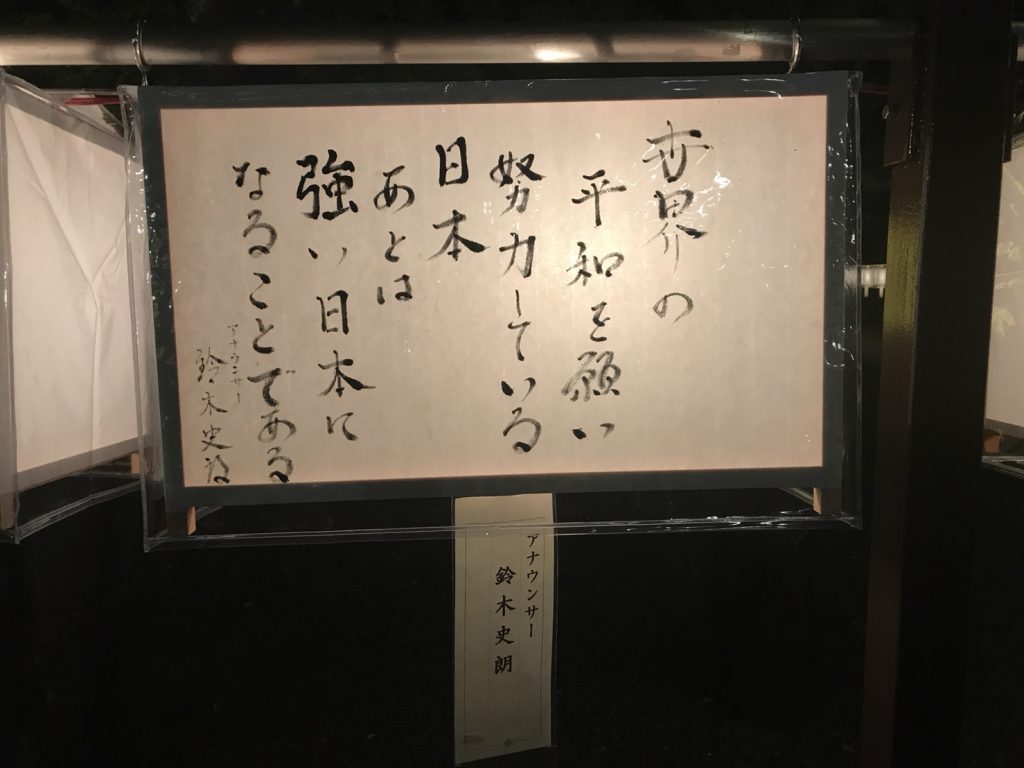 世界の
平和を願い
努力している
日本
あとは
強い日本に
なることである
アナウンサー
鈴木史朗
アナウンサー
鈴木史朗